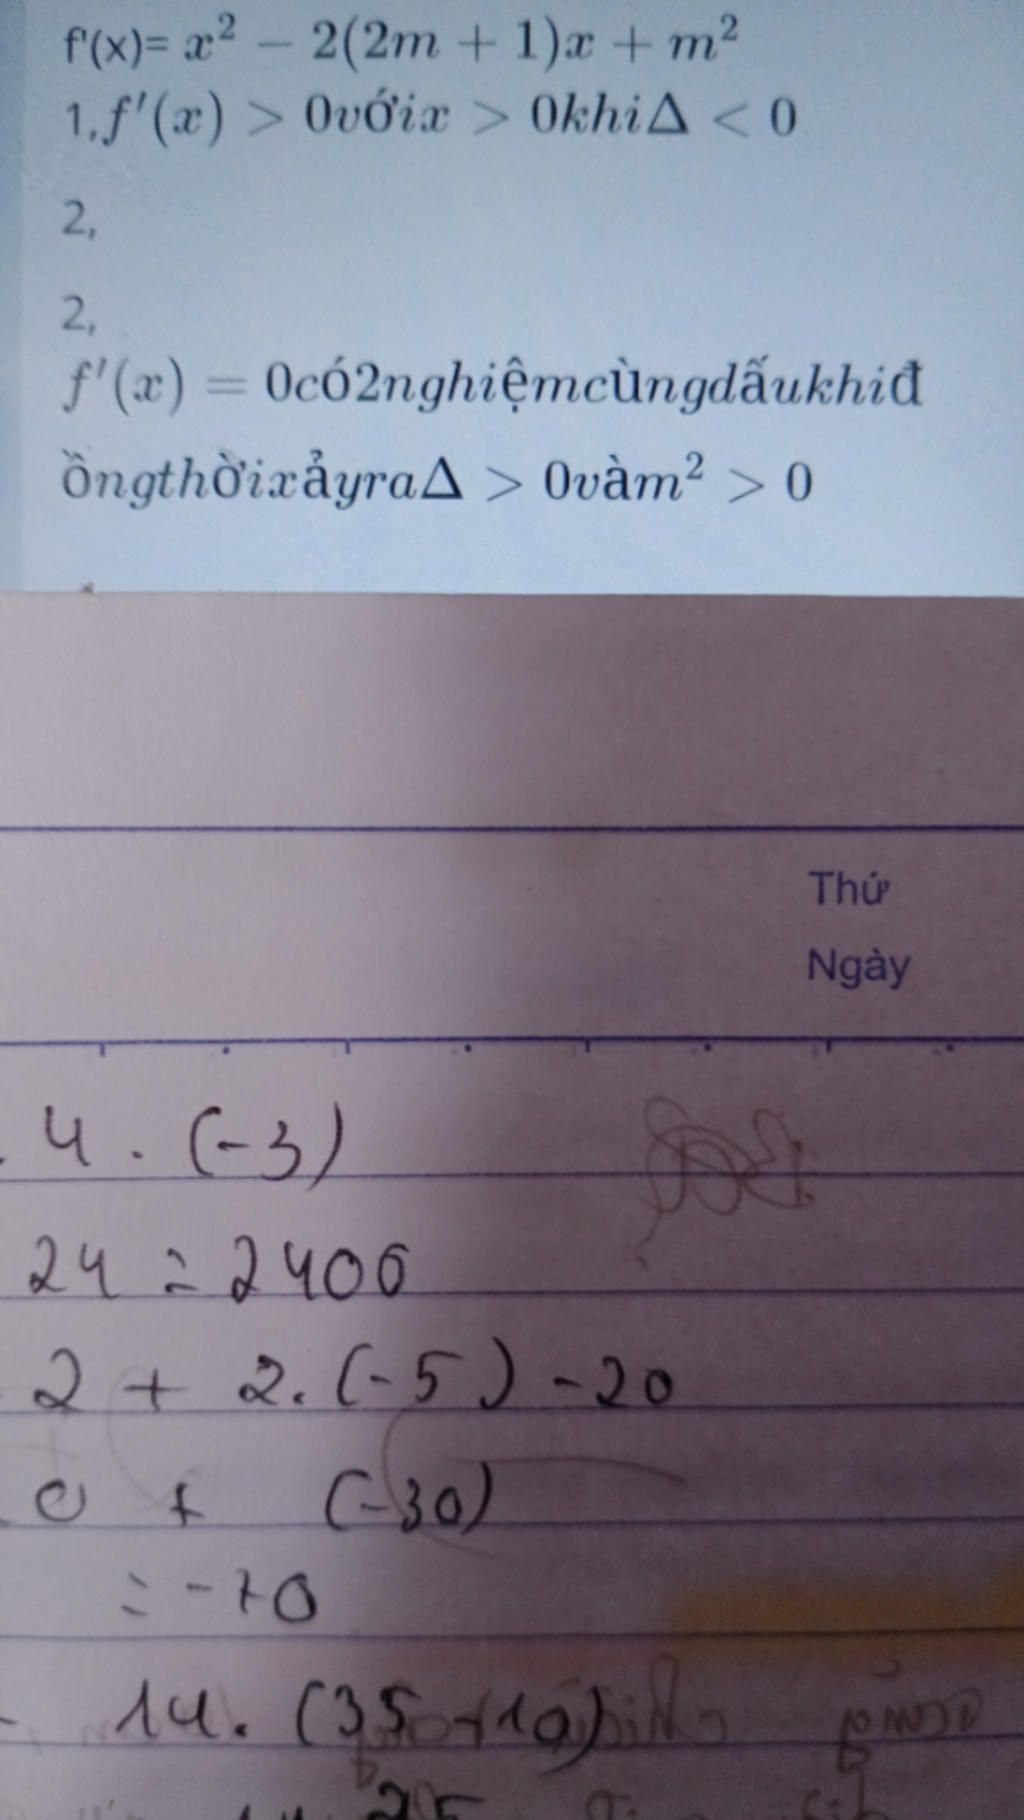 f'(x)= x² − 2(2m + 1)x + m²
1,f′(x) > 0vớix > 0khiΔ < 0
2,
2,
f′(x) = 0có2nghiệmcùngdấukhiđ
ồngthờixảyraΔ > 0vàm² > 0
Thứ
Ngày
. 4 . (-3)
24 = 2400
2 + 2.(-5) -20
0 + (-30)
= -70
- 14. (35 -10)